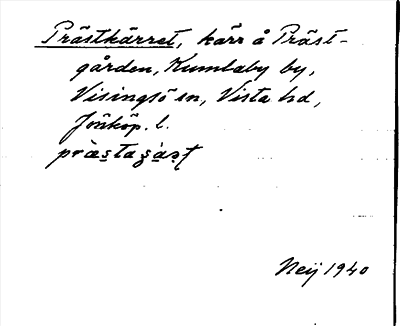 Prästkärret, kärr å Präst-
gården, Kumlaby by,
Visingsö sn, Vista hd,
Jönköp. l.
Neij 1940